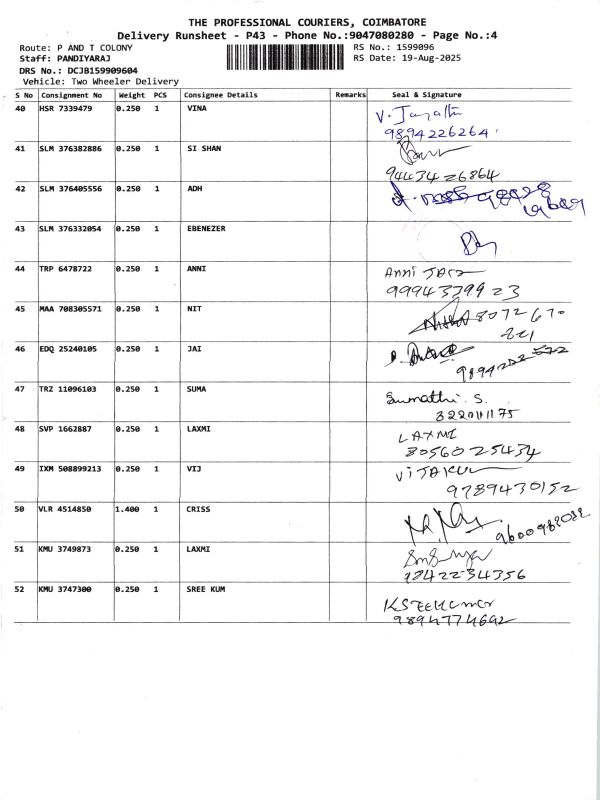 THE PROFESSIONAL COURIERS, COIMBATORE
Delivery Runsheet - P43 - Phone No.:9047080280 - Page No.:4
Route: P AND T COLONY
RS No.: 1599096
Staff: PANDIYARAJ
RS Date: 19-Aug-2025
DRS No.: DCJB159909604
Vehicle: Two Wheeler Delivery
S No Consignment No Weight PCS Consignee Details Remarks Seal & Signature
40 HSR 7339479 0.250 1 VINA
9894226264
41 SLM 376382886 0.250 1 SI SHAN
9443426864
42 SLM 376405556 0.250 1 ADH
43 SLM 376332054 0.250 1 EBENEZER
44 TRP 6478722 0.250 1 ANNI
Anni
9994379923
45 MAA 708305571 0.250 1 NIT
46 EDQ 25240105 0.250 1 JAI
47 TRZ 11096103 0.250 1 SUMA
Sumathi. S.
48 SVP 1662887 0.250 1 LAXMI
LAXMI
8056025434
49 IXM 508899213 0.250 1 VIJ
9789430152
50 VLR 4514850 1.400 1 CRISS
51 KMU 3749873 0.250 1 LAXMI
9842234356
52 KMU 3747300 0.250 1 SREE KUM
9894774692